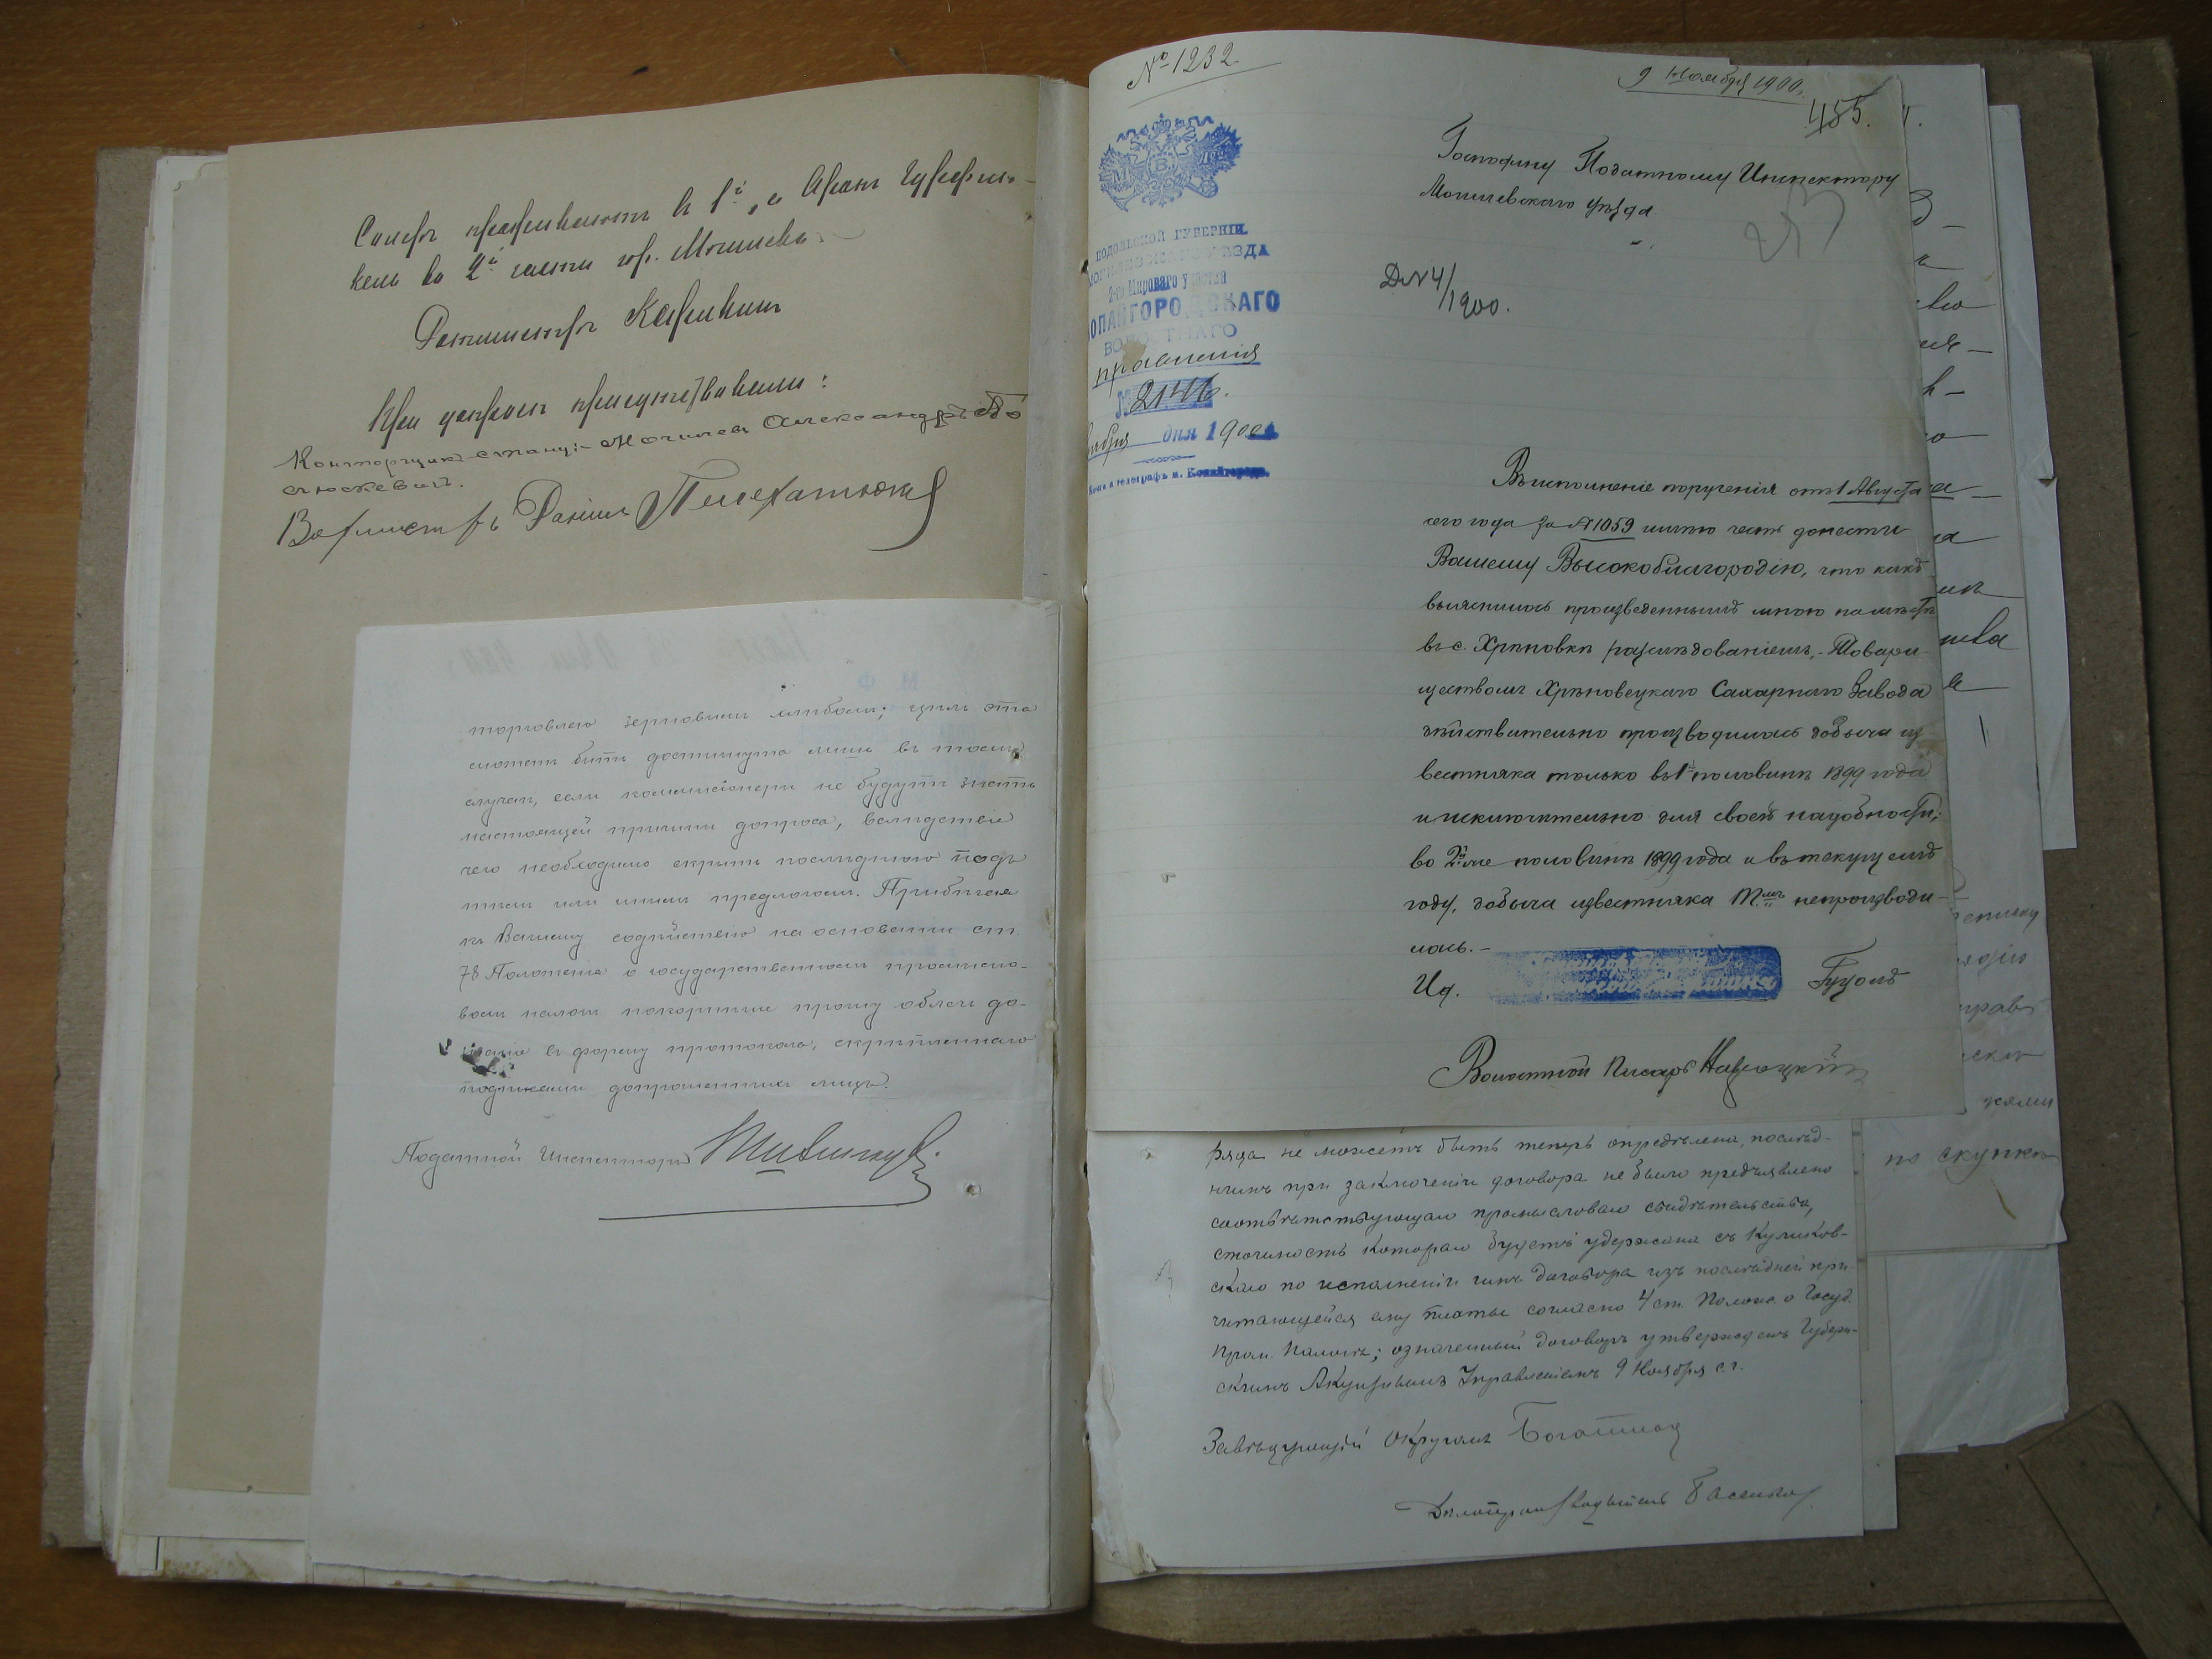 Кели во 2й части гор. Могилева.
Ротмистръ
При допросѣ присутствовали:
Конторщикъ станціи Могилевъ Александръ
Вахмистръ Данiилъ
торговлею зерновымъ хлѣбомъ; цѣль эта
можетъ быть достигнута лишь въ томъ
случаѣ, если коммисіонеры не будутъ знать
настоящей причины допроса, вслѣдствіе
чего необходимо скрыть послѣднюю подъ
тѣмъ или инымъ предлогомъ. Прибѣгая
къ Вашему содѣйствію на основаніи ст.
78 Положенія о государственномъ промысло-
вомъ налогѣ покорнѣйше прошу облечь до-
въ форму протокола, скрѣпленнаго
подписями допрошенныхъ лицъ.
Податной Инспекторъ
№ 1232.
9 Ноября 1900.
455.
М В Д
ПОДОЛЬСКОЙ ГУБЕРНІИ.
МОГИЛЕВСКАГО УѢЗДА
2-го Мирового участка
КОПАЙГОРОДСКАГО
ВОЛОСТНАГО
правленія
№ 2146.
дня 1900
Почт. и телеграфъ м. Копайгородъ.
Господину Податному Инспектору
Могилевскаго уѣзда
Д. № 4/1900.
253
Въ исполненіе порученія отъ 1 Августа
сего года за № 1059 имѣю честь донести
Вашему Высокоблагородію, что какъ
выяснилось произведеннымъ мною на мѣстѣ
въ с. Хрѣновкѣ разслѣдованіемъ, Товари-
ществомъ Хрѣновецкаго Сахарнаго Завода
дѣйствительно производилась добыча из-
вестняка только въ 1й половинѣ 1899 года
и исключительно для своей надобности;
во 2й же половинѣ 1899 года и въ текущемъ
году, добыча известняка Т.мъ непроизводи-
лась.-
Волостной Писарь
ряда не можетъ быть теперь опредѣлена, послѣд-
нимъ при заключеніи договора не было предъявлено
соотвѣтствующаго промысловаго свидѣтельства,
стоимость котораго будетъ удержана съ Куликов-
скаго по исполненіи имъ договора изъ послѣдней при-
читающейся ему платы согласно 4 ст. Полож. о Госуд.
Пром. Налогѣ; означенный договоръ утвержденъ Губерн-
скимъ Акцизнымъ Управленіемъ 9 Ноября с.г.
Завѣдующій Округомъ
Дѣлопроизводитель
по скупкѣ